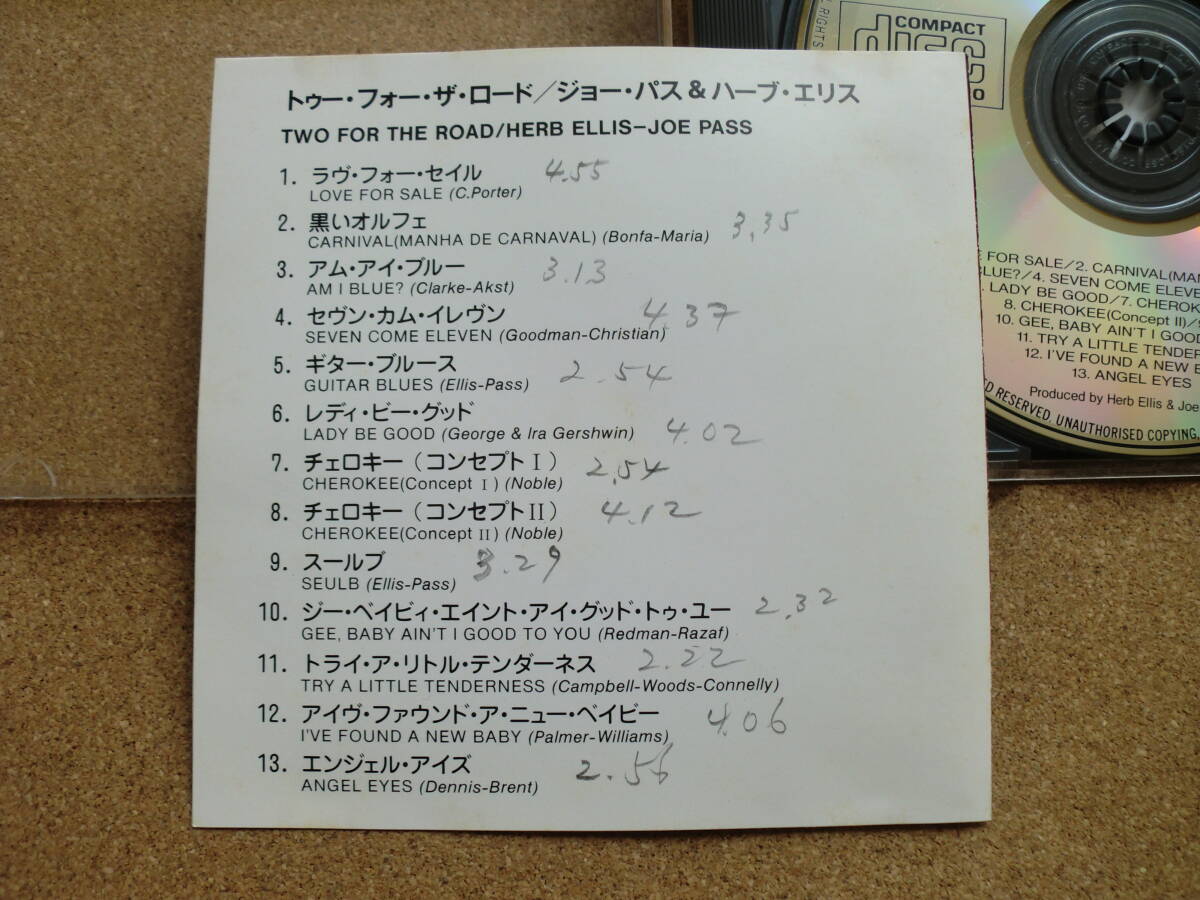 トゥー・フォー・ザ・ロード/ジョー・パス&ハーブ・エリス
TWO FOR THE ROAD/HERB ELLIS−JOE PASS
1. ラヴ・フォー・セイル 4.55
LOVE FOR SALE (C.Porter)
2. 黒いオルフェ 3.35
CARNIVAL(MANHA DE CARNAVAL) (Bonfa-Maria)
3. アム・アイ・ブルー 3.13
AM I BLUE? (Clarke-Akst)
4. セヴン・カム・イレヴン 4.37
SEVEN COME ELEVEN (Goodman-Christian)
5. ギター・ブルース 2.54
GUITAR BLUES (Ellis-Pass)
6. レディ・ビー・グッド 4.02
LADY BE GOOD (George & Ira Gershwin)
7. チェロキー(コンセプトⅠ) 2.54
CHEROKEE(Concept Ⅰ) (Noble)
8. チェロキー(コンセプトⅡ) 4.12
CHEROKEE(Concept Ⅱ) (Noble)
9. スールブ 3.29
SEULB (Ellis-Pass)
10. ジー・ベイビィ・エイント・アイ・グッド・トゥ・ユー 2.32
GEE, BABY AIN'T I GOOD TO YOU (Redman-Razaf)
11. トライ・ア・リトル・テンダーネス 2.22
TRY A LITTLE TENDERNESS (Campbell-Woods-Connelly)
12. アイヴ・ファウンド・ア・ニュー・ベイビー 4.06
I'VE FOUND A NEW BABY (Palmer-Williams)
13. エンジェル・アイズ 2.56
ANGEL EYES (Dennis-Brent)
COMPACT
disc
RIGHTS
FOR SALE/2. CARNIVAL(MAN
BLUE?/4. SEVEN COME ELEVE
LADY BE GOOD/7. CHEROK
8. CHEROKEE(Concept II)/
10. GEE, BABY AIN'T I GOOD
11. TRY A LITTLE TENDER
12. I'VE FOUND A NEW B
13. ANGEL EYES
Produced by Herb Ellis & Joe
D RESERVED. UNAUTHORISED COPYING,